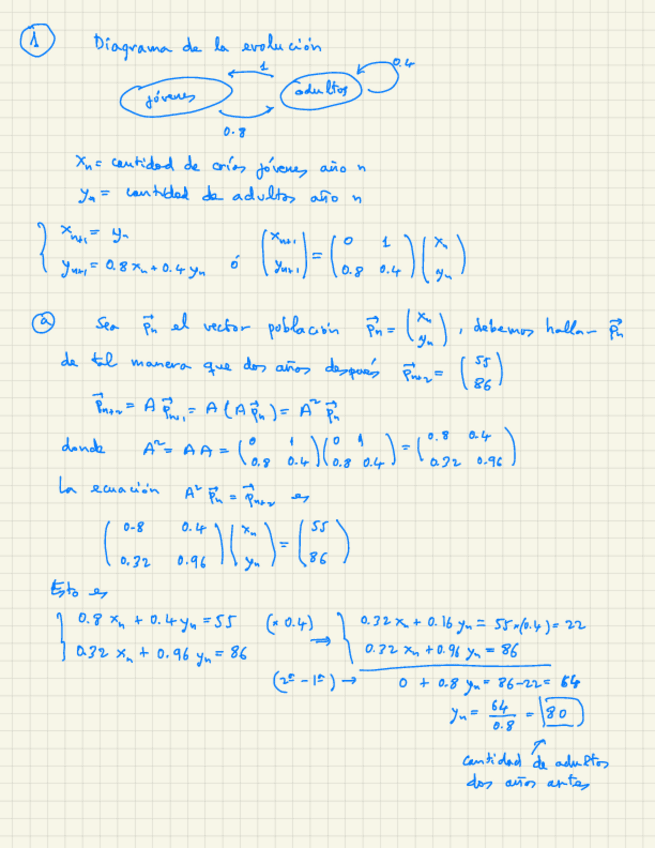 1 Diagrama de la evolución
1 0.4
jóvenes adultos
0.8
xₙ = cantidad de crías jóvenes año n
yₙ = cantidad de adultos año n
{ xₙ₊₁ = yₙ
yₙ₊₁ = 0.8 xₙ + 0.4 yₙ ó (xₙ₊₁ yₙ₊₁) = (0 1 0.8 0.4) (xₙ yₙ)
a Sea p⃗ₙ el vector población p⃗ₙ = (xₙ yₙ), debemos hallar p⃗ₙ
de tal manera que dos años después p⃗ₙ₊₂ = (55 86)
p⃗ₙ₊₂ = A p⃗ₙ₊₁ = A (A p⃗ₙ) = A² p⃗ₙ
donde A² = A A = (0 1 0.8 0.4) (0 1 0.8 0.4) = (0.8 0.4 0.32 0.96)
La ecuación A² p⃗ₙ = p⃗ₙ₊₂ es
(0.8 0.4 0.32 0.96) (xₙ yₙ) = (55 86)
Esto es
{ 0.8 xₙ + 0.4 yₙ = 55 (× 0.4) ⇒ { 0.32 xₙ + 0.16 yₙ = 55×(0.4) = 22
0.32 xₙ + 0.96 yₙ = 86 0.32 xₙ + 0.96 yₙ = 86
(2ª - 1ª) → 0 + 0.8 yₙ = 86-22 = 64
yₙ = 64/0.8 = 80
cantidad de adultos
dos años antes